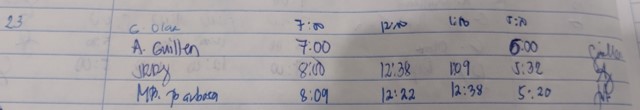 23 C. Diaz 7:00 12:00 1:00 5:30
A. Guillen 7:00 6:00
8:00 12:38 1:09 5:32
MA. Barbosa 8:09 12:22 12:38 5:20